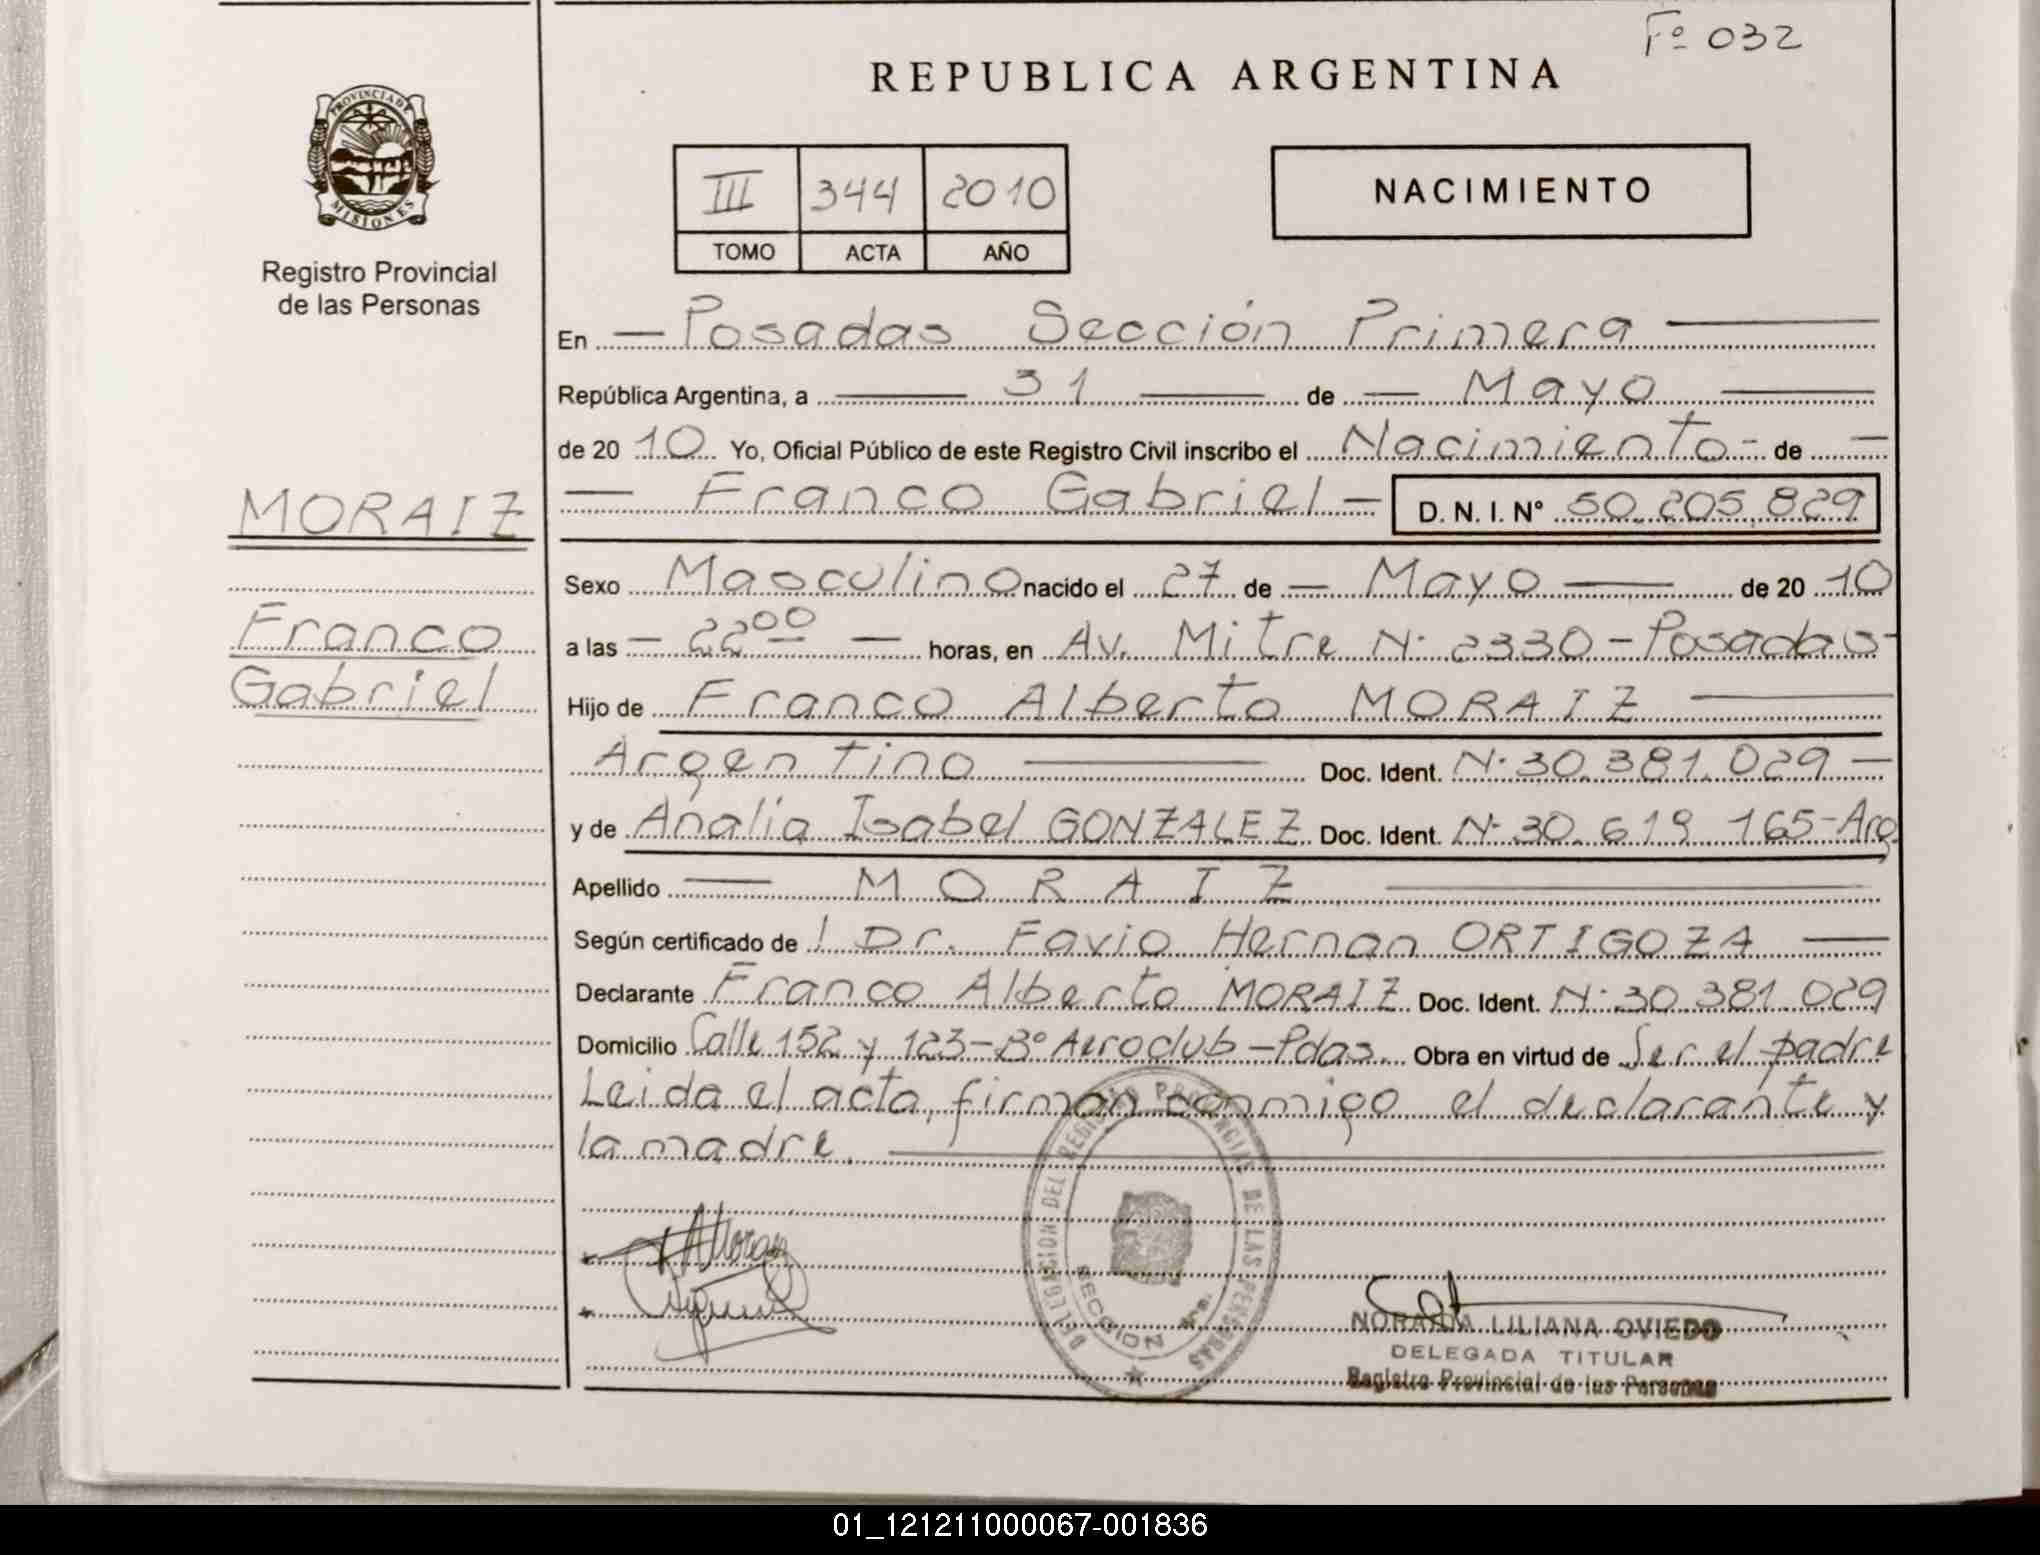 Fº 032
REPUBLICA ARGENTINA
PROVINCIA DE
MISIONES
Registro Provincial
de las Personas
III 344 2010
TOMO ACTA AÑO
NACIMIENTO
En — Posadas Sección Primera —
República Argentina, a — 31 — de — Mayo —
de 20 10 Yo, Oficial Público de este Registro Civil inscribo el Nacimiento - de —
MORAIZ
— Franco Gabriel — D. N. I. Nº 50.205.829
Sexo Masculino nacido el 27 de — Mayo — de 20 10
Franco
Gabriel
a las — 22 00 — horas, en Av. Mitre N· 2330 - Posadas -
Hijo de Franco Alberto MORAIZ —
Argentino — Doc. Ident. N· 30.381.029 —
y de Analia Isabel GONZALEZ Doc. Ident. N· 30.619.165 - Arg
Apellido — MORAIZ —
Según certificado de / Dr. Favio Hernan ORTIGOZA —
Declarante Franco Alberto MORAIZ Doc. Ident. N· 30.381.029
Domicilio Calle 152 y 123 - Bº Aeroclub - Pdas. Obra en virtud de Ser el padre
Leida el acta, firman conmigo el declarante y
la madre. —
DELEGACION DEL REGISTRO PROVINCIAL DE LAS PERSONAS
SECCION 1ra.
LILIANA OVIEDO
DELEGADA TITULAR
Registro Provincial de las Personas
01_121211000067-001836